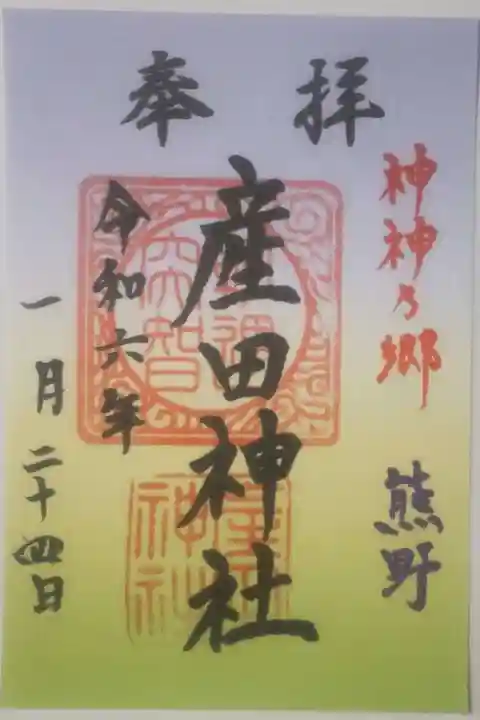 奉拝
神神乃郷
熊野
産田神社
令和六年
一月二十四日
産田神社